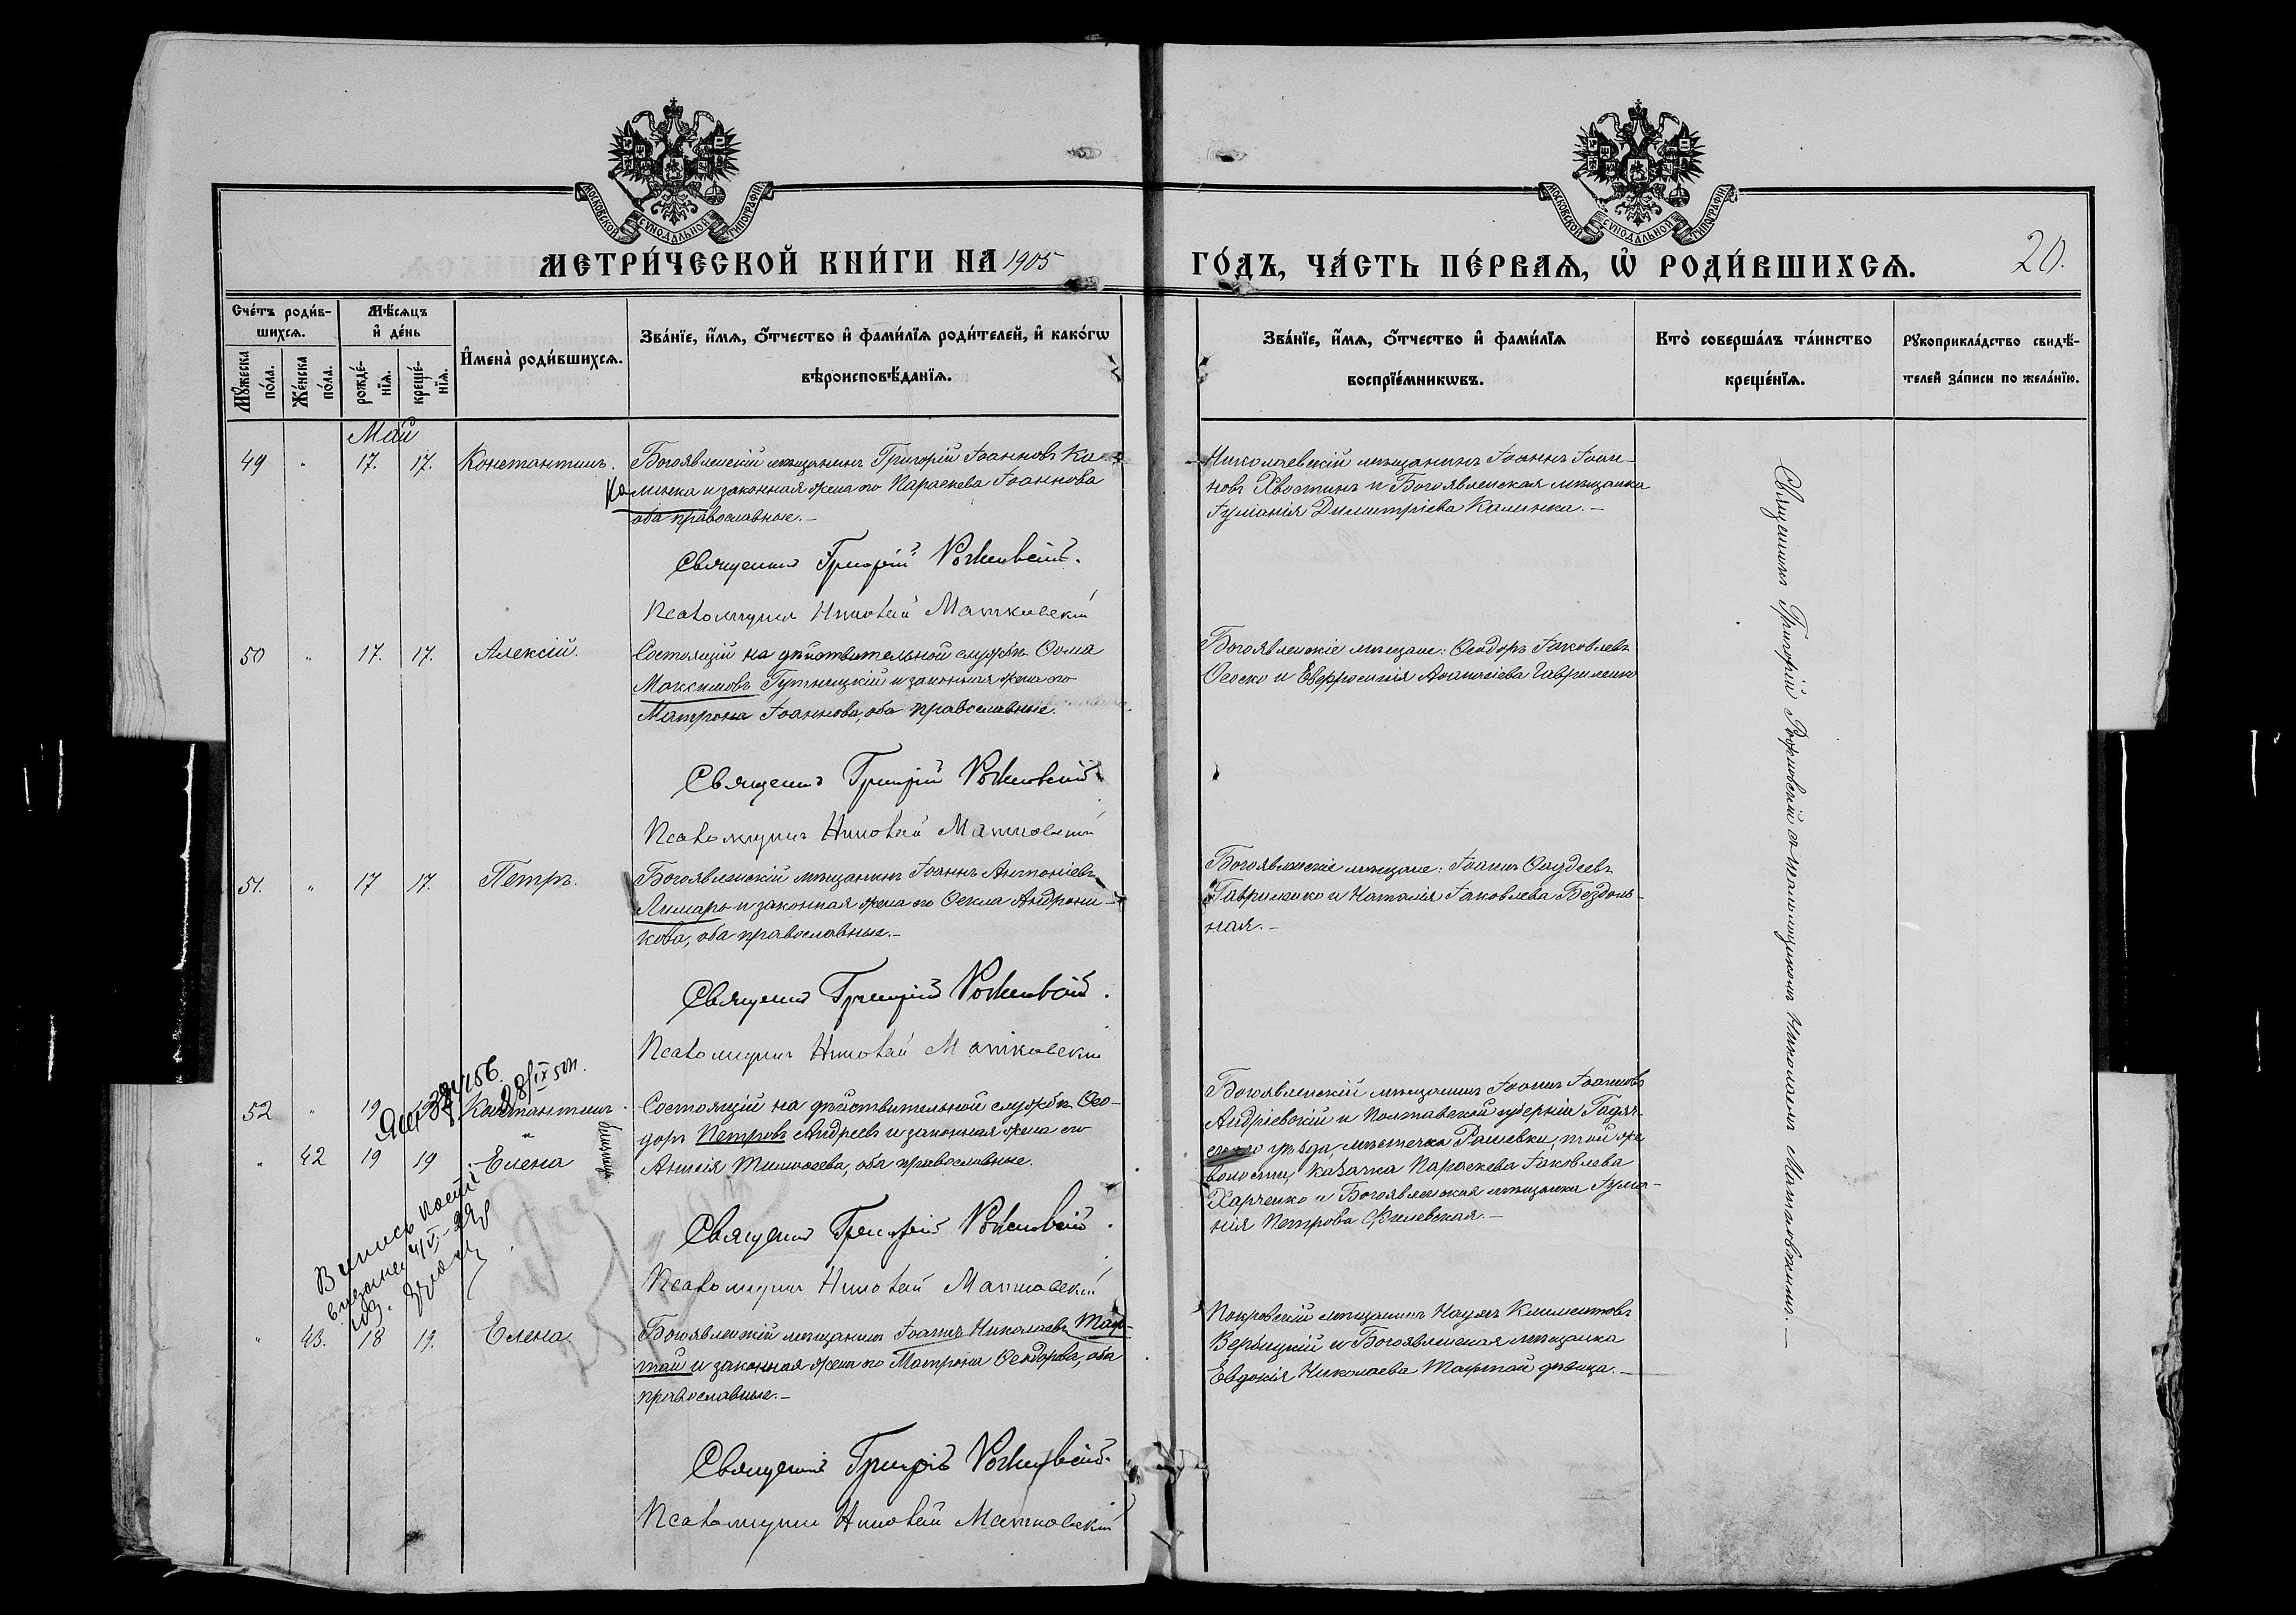 МОСКОВСКОЙ СѴНОДАЛЬНОЙ ТИПОГРАФІИ
МОСКОВСКОЙ СѴНОДАЛЬНОЙ ТИПОГРАФІИ
МЕТРИ́ЧЕСКОЙ КНИ́ГИ НА 1905
ГО́ДЪ, ЧА́СТЬ ПЕ́РВАѦ, Ѡ҆ РОДИ́ВШИХСѦ.
20.
Сче́тъ роди́в-
шихсѧ.
Мꙋ́жеска по́ла.
Же́нска по́ла.
Мѣ́сѧцъ
и҆ де́нь
рожде́-
нїѧ.
креще́-
нїѧ.
И҆мена̀ роди́вшихсѧ.
Зва́нїе, и҆́мѧ, ѻ҆́тчество и҆ фами́лїѧ роди́телей, и҆ како́гѡ
вѣроисповѣ́данїѧ.
Зва́нїе, и҆́мѧ, ѻ҆́тчество и҆ фами́лїѧ
воспрїе́мникѡвъ.
Кто̀ соверша́лъ та́инство
креще́нїѧ.
Рꙋкоприкла́дство свидѣ́-
телей за́писи по жела́нїю.
Май
49 " 17. 17. Константинъ.
Богоявленскій мѣщанинъ Григорій Іоанновъ Ка-
Калинка и законная жена его Параскева Іоаннова
оба православные.-
Священникъ Григорій
Псаломщикъ Николай Матковскій
Николаевскій мѣщанинъ Іоаннъ Іоан-
новъ Хвостинъ и Богоявленская мѣщанка
Іуліанія Димитріева Калинка.-
50 " 17. 17. Алексій.
Состоящій на дѣйствительной службѣ Ѳома
Максимовъ Гутницкій и законная жена его
Матрона Іоаннова, оба православные.
Священникъ Григорій
Псаломщикъ Николай Матковскій
Богоявленскіе мѣщане: Ѳеодоръ Іаковлевъ
и Евфросинія Аѳанасіева Гавриленко
51. " 17 17. Петръ.
Богоявленскій мѣщанинъ Іоаннъ Антоніевъ
Лимарь и законная жена его Ѳекла Андрони-
кова, оба православные.-
Священникъ Григорій
Псаломщикъ Николай Матковскій
Богоявленскіе мѣщане: Іоаннъ Ѳаддеевъ
Гавриленко и Наталія Іаковлева Бездоль-
ная.-
28/IX 50
52 " 19 19 Константинъ.
" 42 19 19 Елена
близнецы
Состоящій на дѣйствительной службѣ Ѳео-
доръ Петровъ Андреевъ и законная жена его
Анисія Тимоѳеева, оба православные.
Священникъ Григорій
Псаломщикъ Николай Матковскій
Богоявленскій мѣщанинъ Іоаннъ Іоанновъ
Андріевскій и Полтавской губерніи Гадяч-
скаго уѣзда, мѣстечка Рашевки, той же
волости, казачка Параскева Іаковлева
Харченко и Богоявленская мѣщанка Іулiа-
нія Петрова
" 43. 18 19. Елена
Богоявленскій мѣщанинъ Іоаннъ Николаевъ Таф-
тай и законная жена его Матрона Ѳеодорова, оба
православные.-
Священникъ Григорій
Псаломщикъ Николай Матковскій
Покровскій мѣщанинъ Наумъ Климентовъ
Вербицкій и Богоявленская мѣщанка
Евдокія Николаева Тафтай дѣвица.-
Священникъ Григорій съ псаломщикомъ Николаемъ Матковскимъ.-